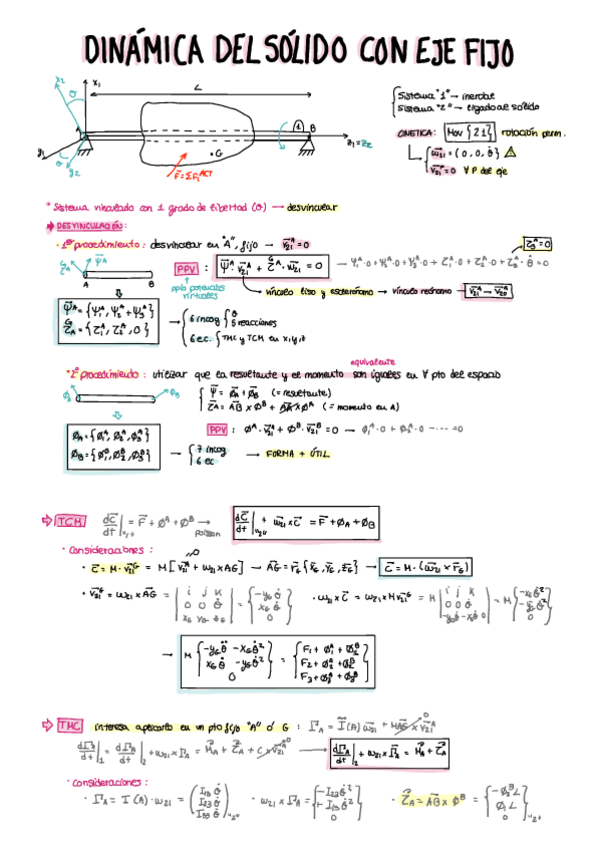 DINÁMICA DEL SÓLIDO CON EJE FIJO
x₂ x₁ θ L
A 1 B z₁ = z₂
y₁ θ y₂ G F̄ = ΣFᵢᴬᶜᵀ
Sistema "1" → inercial
Sistema "2" → ligado al sólido
CINÉTICA: Mov {21} rotación perm.
ω̄₂₁ = (0, 0, θ̇) ⚠
v̄₂₁ᴾ = 0 ∀ P del eje
* Sistema vinculado con 1 grado de libertad (θ) → desvincular
⇒ DESVINCULACIÓN:
· 1er procedimiento: desvincular en "A", fijo → v̄₂₁ᴬ = 0
PPV: Ψ̄ᴬ · v̄₂₁ᴬ + τ̄ᴬ · ω̄₂₁ = 0
ppio potencias virtuales
vínculo liso y esclerónomo → vínculo reónomo →
A B
6 incog { θ
5 reacciones
6 ec. { TMC y TCM en x, y, z
*2º procedimiento: utilizar que la resultante y el momento son iguales en ∀ pto del espacio
equivalente
Ψ̄ = φ̄A + φ̄B (= resultante)
τ̄A = A̅B̅ × φᴮ + A̅A̅ × φᴬ (= momento en A)
PPV: φᴬ · v̄₂₁ᴬ + φᴮ · v̄₂₁ᴮ = 0 →
φ̄A = {φ₁ᴬ, φ₂ᴬ, φ₃ᴬ}
φ̄B = {φ₁ᴮ, φ₂ᴮ, φ₃ᴮ}
7 incog
6 ec
→ FORMA + ÚTIL
⇒ TCM dC̄/dt |₁ = F̄ + φᴬ + φᴮ → Poisson dC̄/dt |₂ + ω̄₂₁ × C̄ = F̄ + φA + φB
· Consideraciones:
· C̄ = M · v̄₂₁ᴳ = M [v̄₂₁ᴬ + ω₂₁ × AG] → A̅G̅ = r̄G {xG, yG, zG} → C̄ = M · (ω̄₂₁ × r̄G)
· v̄₂₁ᴳ = ω₂₁ × A̅G̅ = | i j k | 0 0 θ̇ | xG yG zG | = { -yG θ̇, xG θ̇, 0 } · ω₂₁ × C̄ = ω₂₁ × M v̄₂₁ᴳ = M | i j k | 0 0 θ̇ | -yGθ̇ xGθ̇ 0 | = M { -xG θ̇², -yG θ̇², 0 }
→ M { -yG θ̈ - xG θ̇², xG θ̈ - yG θ̇², 0 } = { F₁ + φ₁ᴬ + φ₁ᴮ, F₂ + φ₂ᴬ + φ₂ᴮ, F₃ + φ₃ᴬ + φ₃ᴮ }
⇒ TMC interesa aplicarlo en un pto fijo "A" ó G : Γ̄A = I(A) ω̄₂₁ + M A̅G̅ × v̄₂₁ᴬ
dΓ̄A/dt |₁ = dΓ̄A/dt |₂ + ω₂₁ × Γ̄A = M̄A + τ̄A + C × v̄₂₁ᴬ → dΓ̄A/dt |₂ + ω₂₁ × Γ̄A = M̄A + τ̄A
· Consideraciones:
· Γ̄A = I(A) · ω₂₁ = ( I₁₃ θ̇, I₂₃ θ̇, I₃₃ θ̇ ) · ω₂₁ × Γ̄A = { -I₂₃ θ̇², + I₁₃ θ̇², 0 } · τ̄A = A̅B̅ × φᴮ = { -φ₂ᴮ L, φ₁ L, 0 }